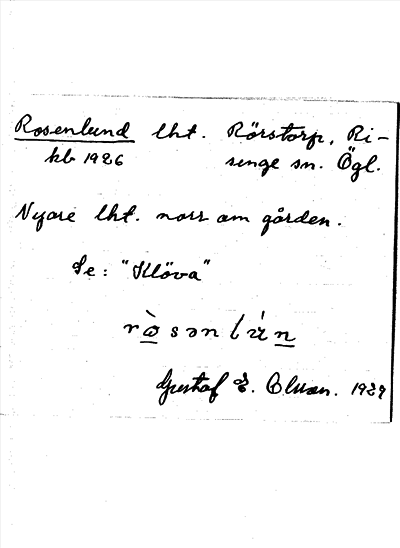 Rosenlund lht. Rörstorp, Ri-
kb 1926 singe sn. Ögl.
Nyare lht. norr om gården.
Se: "Klöva"
Gustaf E. Olsson. 1929